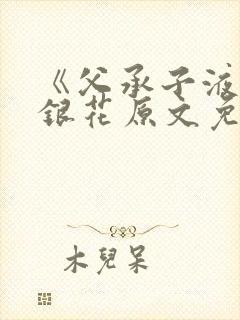 《父承子液
銀花原文免
木兒呆